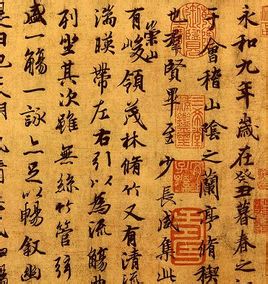 永和九年歲在癸丑暮春之
于會稽山陰之蘭亭脩禊
也羣賢畢至少長咸集此
有崇山峻領茂林脩竹又有清流
湍暎帶左右引以為流觴曲
列坐其次雖無絲竹管弦
盛一觴一詠亦足以暢敘幽